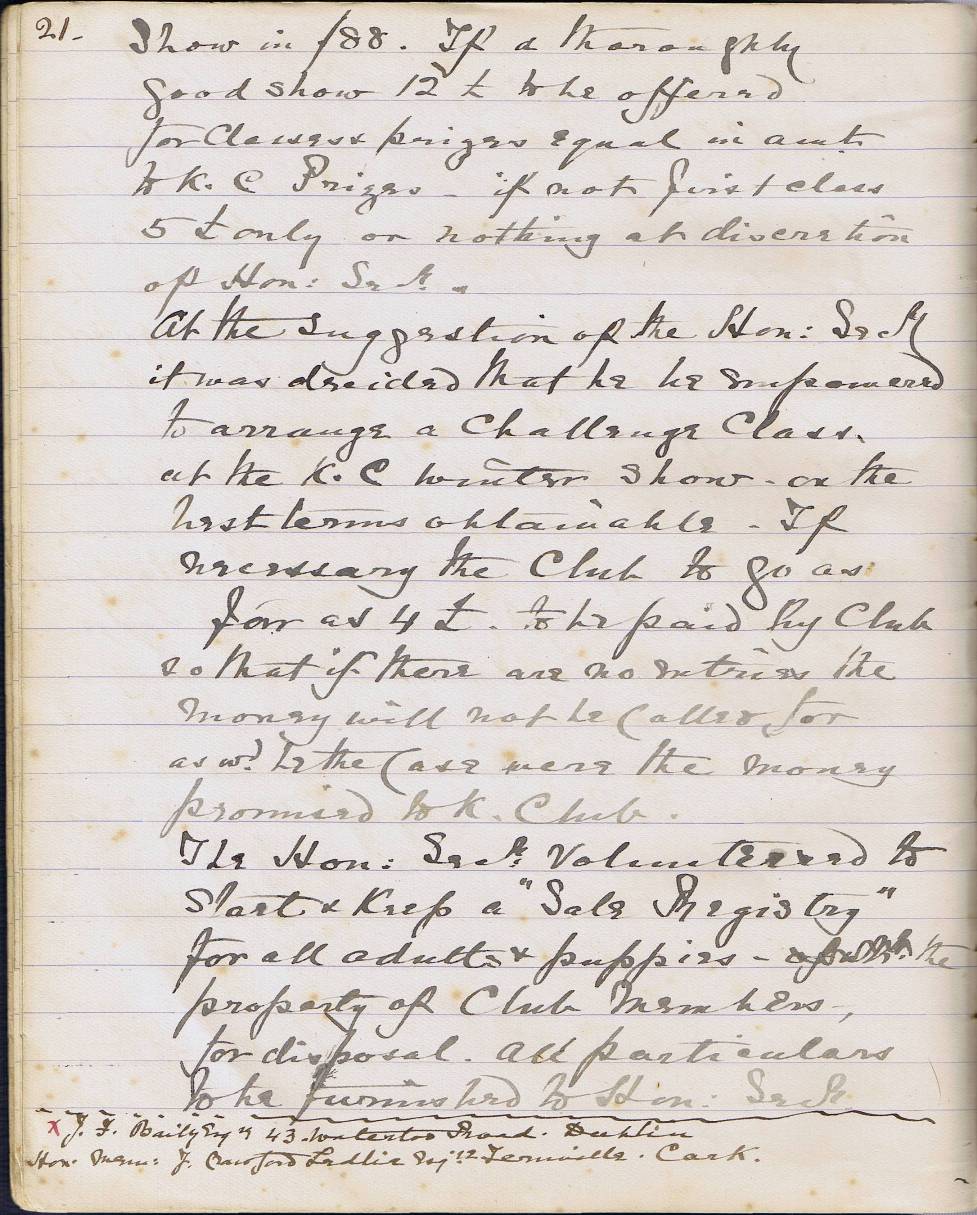 21.
Show in /88. If a thoroughly
good show 12 £ to be offered
for Classes & prizes equal in amt.
to K. C Prizes - if not first class
5 £ only or nothing at discretion
of Hon: Secty.
At the suggestion of the Hon: Secty
it was decided that he be empowered
to arrange a Challenge Class.
at the K. C Winter Show - on the
best terms obtainable - If
necessary the Club to go as
far as 4 £. to be paid by Club
so that if there are no entries the
money will not be Called for
as wd. be the Case were the money
promised to K. Club.
The Hon: Secty. Volunteered to
Start & Keep a "Sale Registry"
for all adults & puppies - the
property of Club Members,
for disposal. All particulars
to be furnished to Hon: Secty.
x J. F. Baily Esqre 43. Waterloo Road. Dublin
Hon. Mem: J. Crawford Ledlie Esqre. Cork.